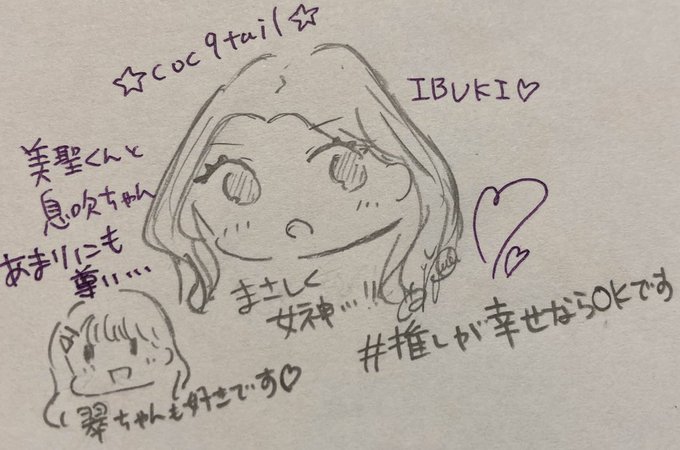 ☆coc9tail☆
IBUKI♡
美聖くんと
息吹ちゃん
あまりにも
尊い…
まさしく
女神…!!
#推しが幸せならOKです
翠ちゃんも好きです♡